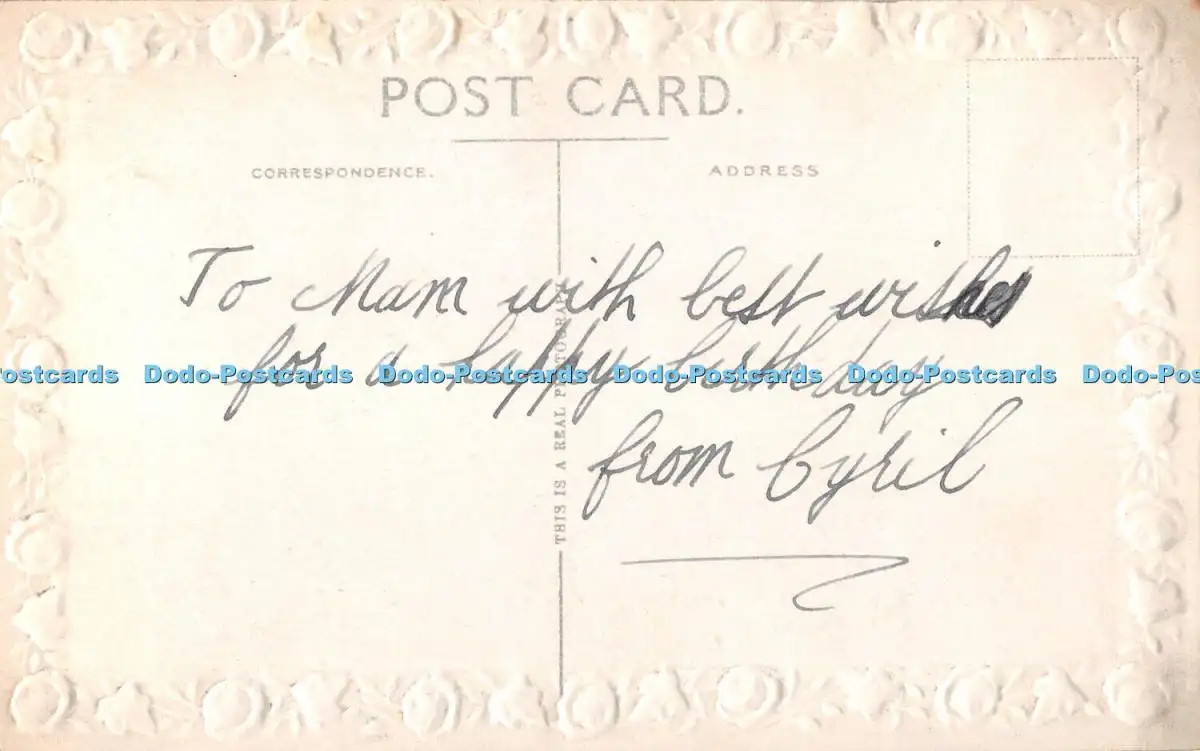 POST CARD.
CORRESPONDENCE.
ADDRESS
To Mam with best wishes
for a happy birthday
from Cyril
THIS IS A REAL PHOTOGRAPH
ostcards Dodo-Postcards Dodo-Postcards Dodo-Postcards Dodo-Postcards Dodo-Pos